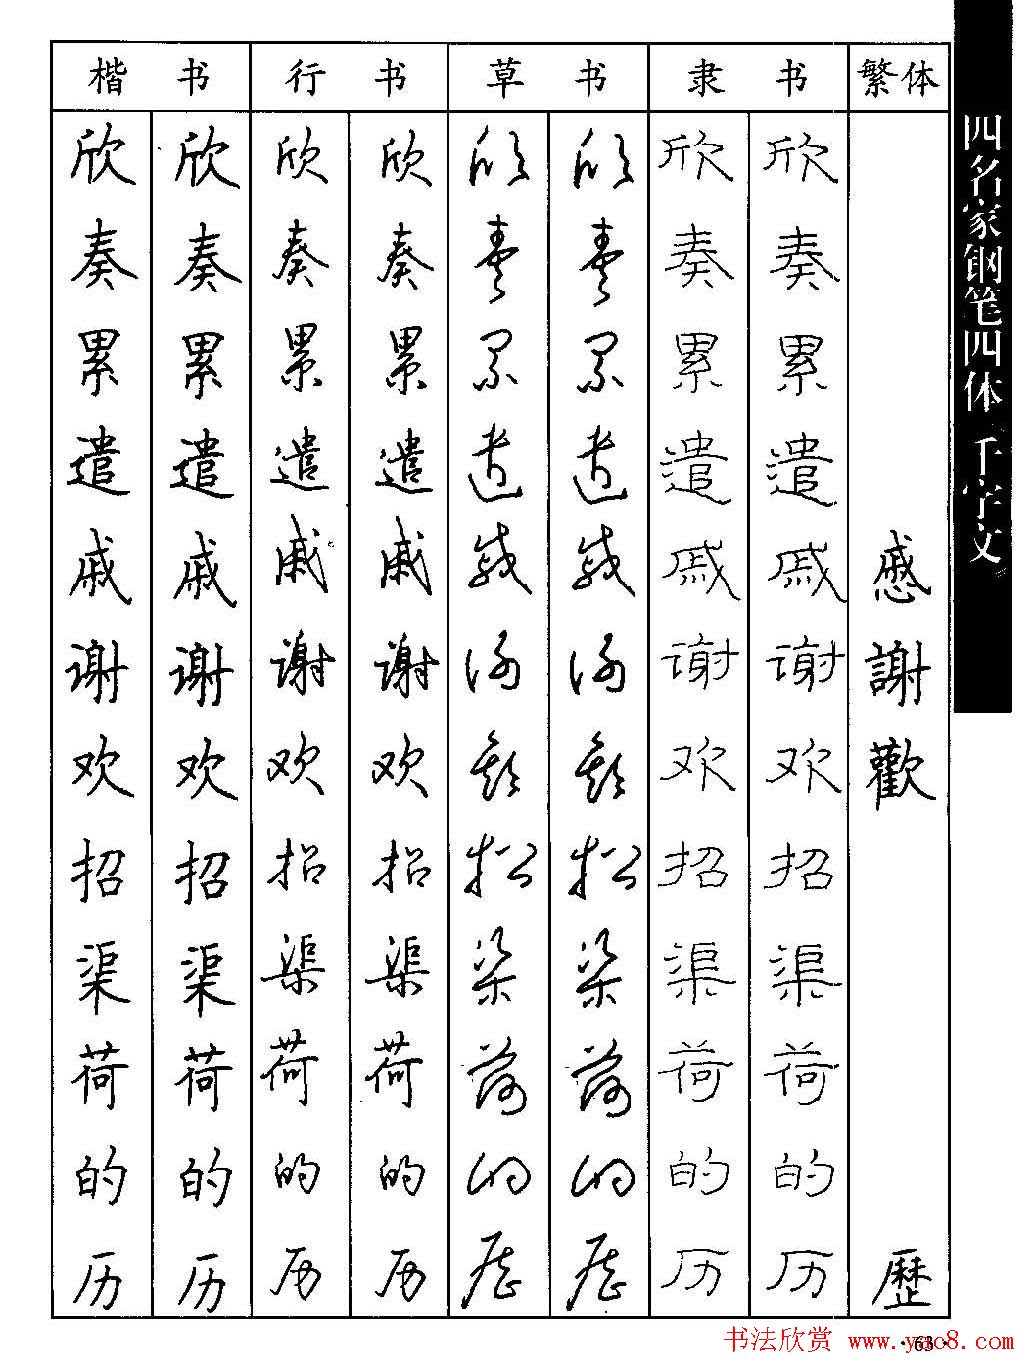 楷书 行书 草书 隶书 繁体
欣 欣 欣 欣 欣 欣 欣 欣
奏 奏 奏 奏 奏 奏 奏 奏
累 累 累 累 累 累 累 累
遣 遣 遣 遣 遣 遣 遣 遣
戚 戚 戚 戚 戚 戚 戚 戚 慼
谢 谢 谢 谢 谢 谢 谢 谢 謝
欢 欢 欢 欢 欢 欢 欢 欢 歡
招 招 招 招 招 招 招 招
渠 渠 渠 渠 渠 渠 渠 渠
荷 荷 荷 荷 荷 荷 荷 荷
的 的 的 的 的 的 的 的
历 历 历 历 历 历 历 历 歷
四名家钢笔四体千字文
·63·
书法欣赏 www.yac8.com